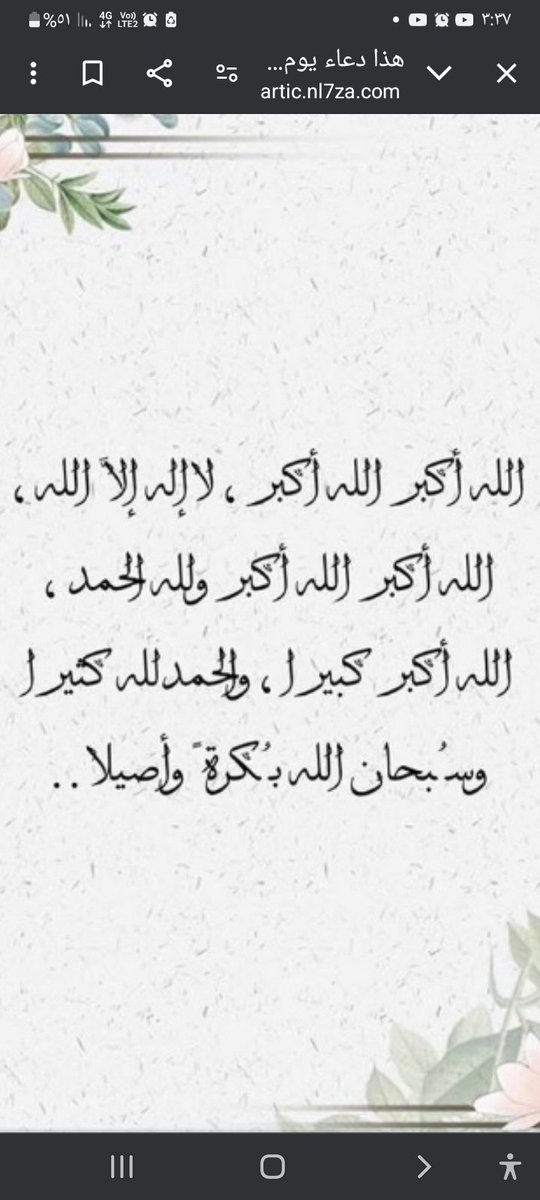 ٪٥١ 4G Vo)) LTE2 ٣:٣٧
هذا دعاء يوم...
artic.nl7za.com
الله أكبر الله أكبر ، لا إله إلاَّ الله ،
الله أكبر الله أكبر ولله الحمد ،
الله أكبر كبيرا ، والحمدلله كثيرا
وسُبحان الله بُكرةً وأصيلا ..